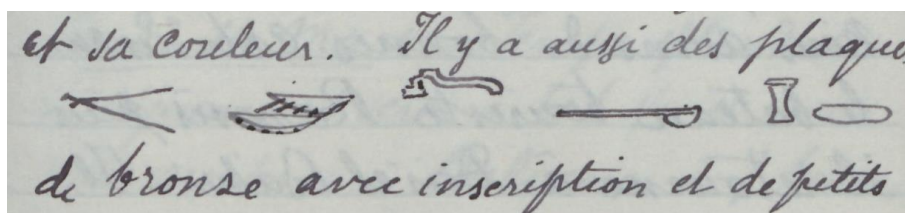 et sa couleur. Il y a aussi des plaque
de bronze avec inscription et de petits